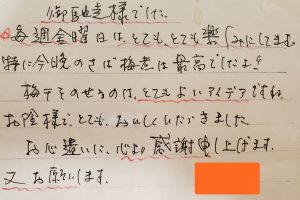 御馳走様でした。
毎週金曜日は、とても、とても楽しみにしてます
特に今晩のさば梅煮は最高でしたよ!!
梅干そのせるのは、とてもよいアイデアですね。
お陰様で、とても、おいしくいただきました
お心遣いに、心より感謝申し上げます。
又お願いします。